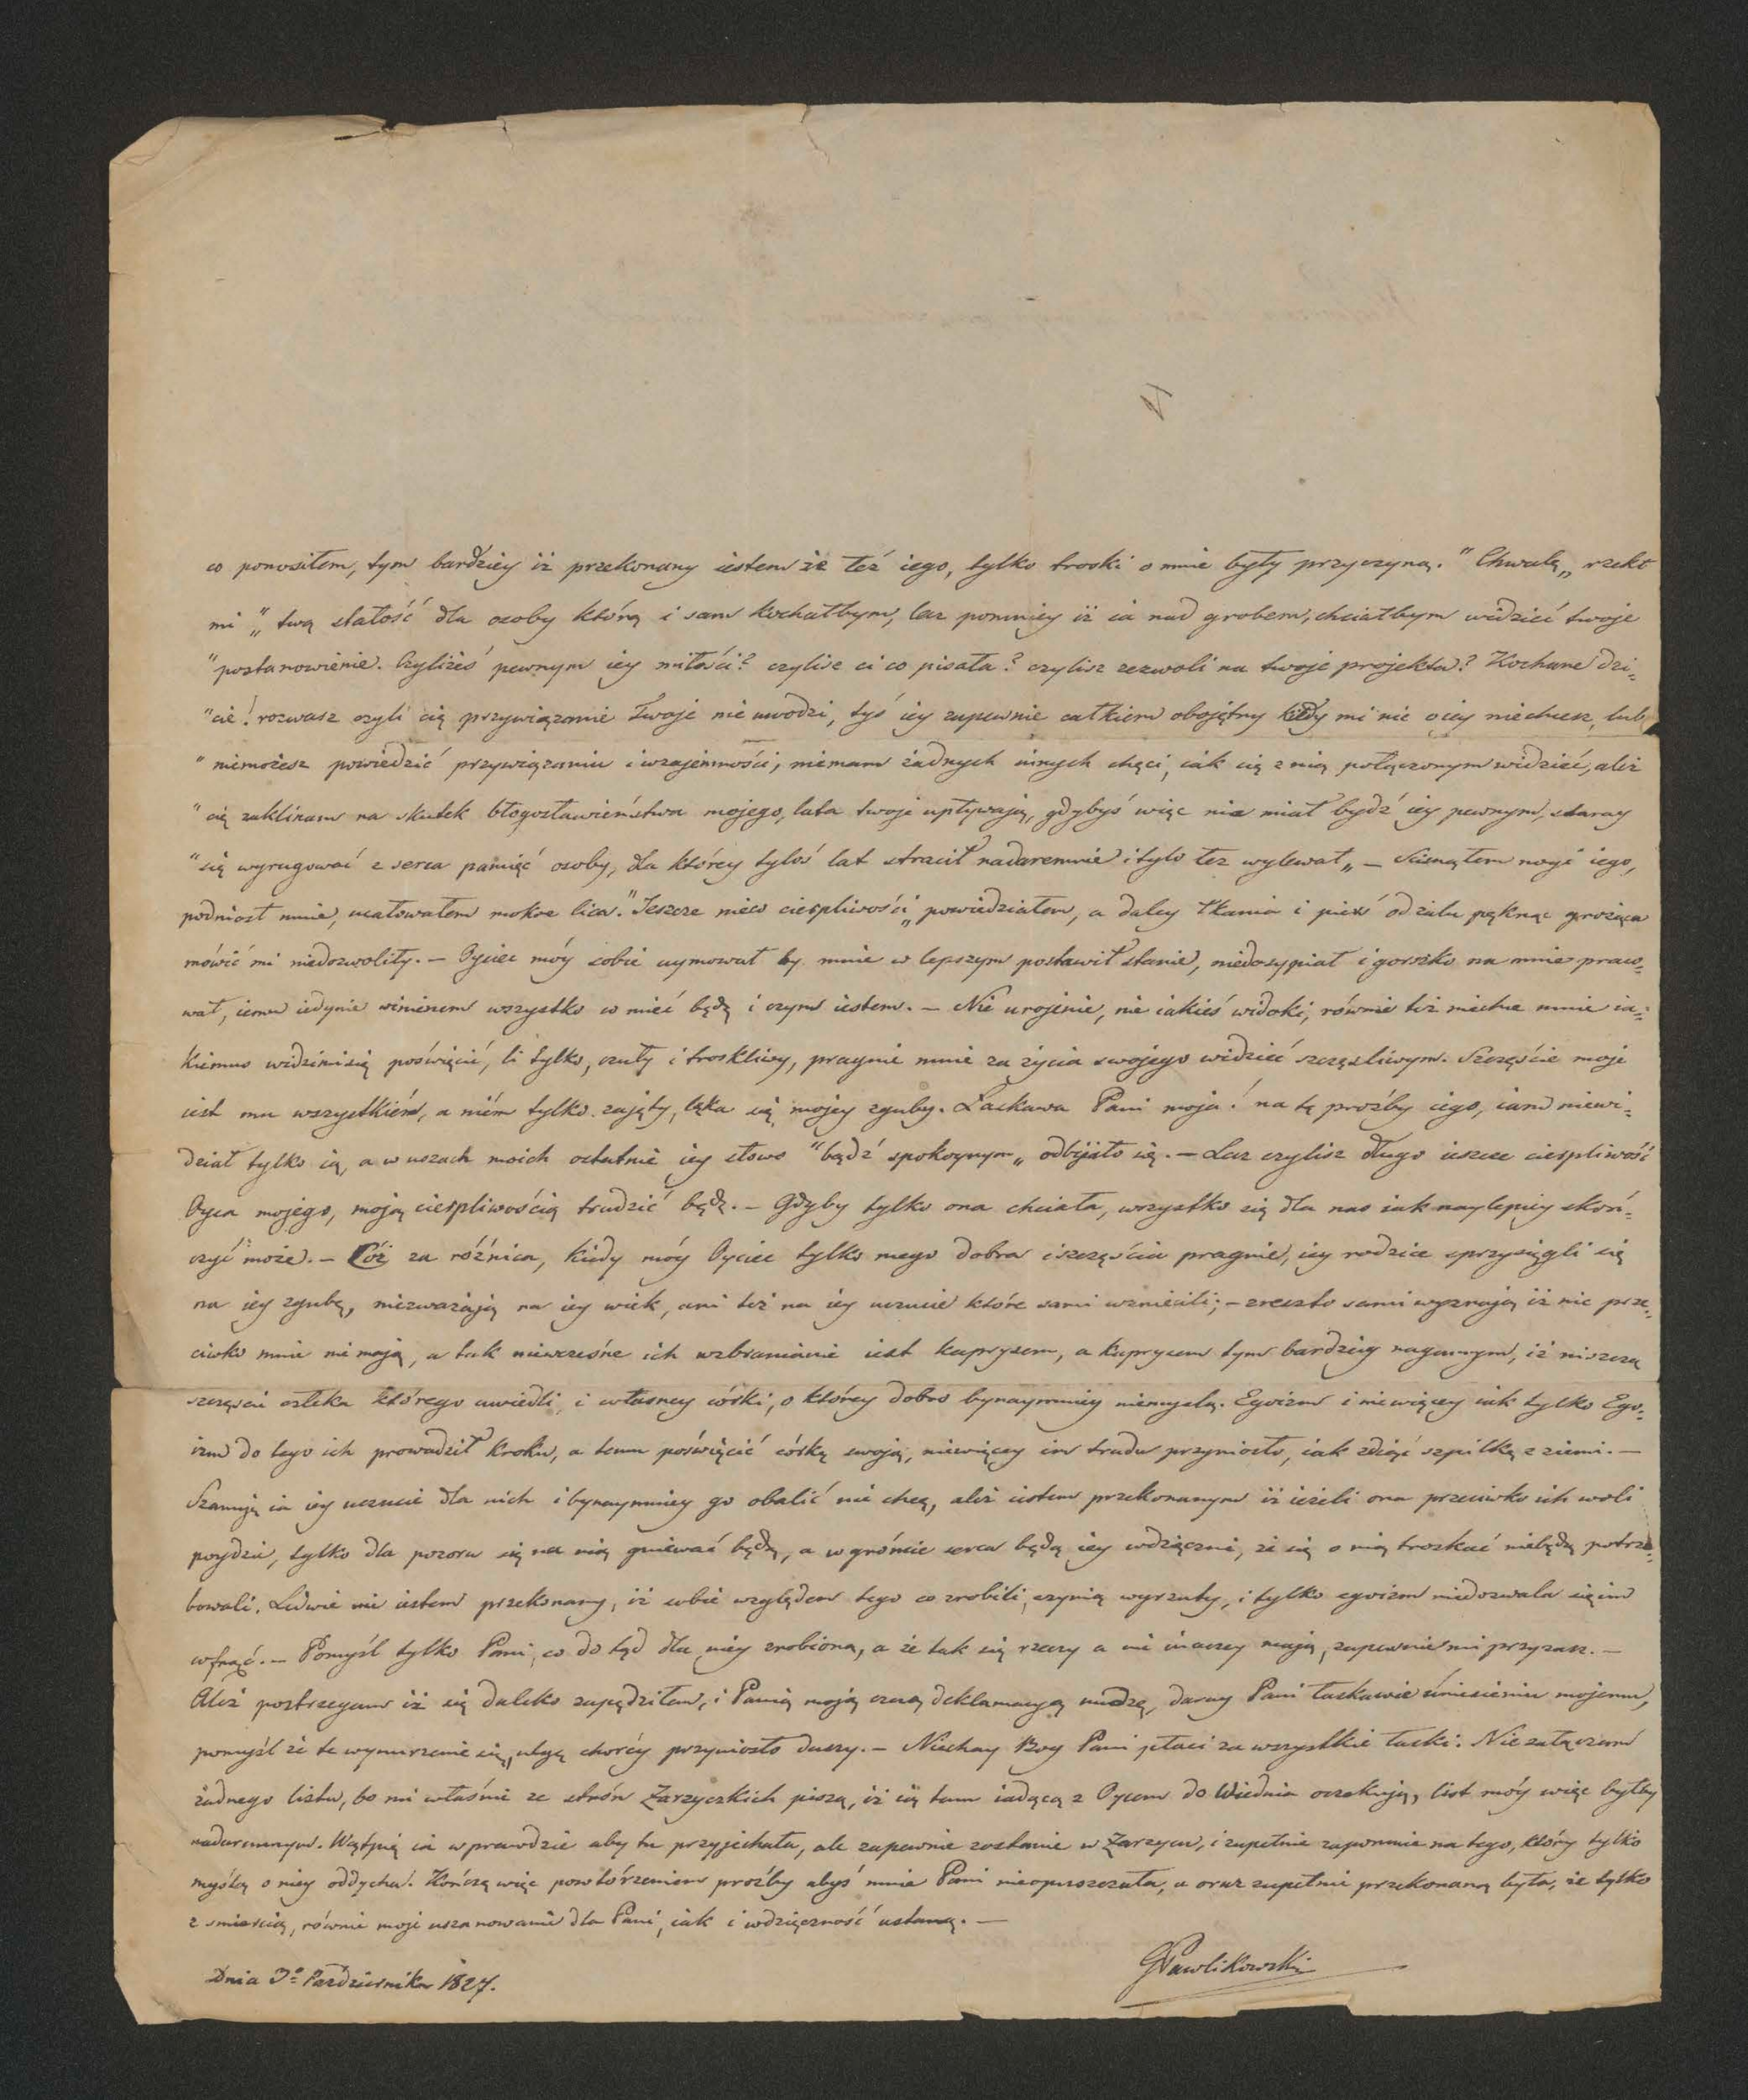 co ponosiłem, tym bardziey iż przekonany iestem że też iego, tylko troski o mnie były przyczyną. "Chwalę„ rzekł
mi „ twą stałość dla osoby którą i sam kochałbym, lecz pomniey iż ia nad grobem, chciałbym widzieć twoje
"postanowienie. Czyliżeś pewnym iey miłości? czylisz ci co pisała? czylisz zezwoli na twoje projekta? Kochane dzi-
"cie! rozwasz czyli cię przywiązanie twoje nie uwodzi, tyś iey zupewnie całkiem obojętny kiedy mi nic o iey niechcesz, lub
" niemożesz powiedzić przywiązaniu i wzajemności, niemam żadnych innych chęci, iak cię z nią połączonym widzieć, aliż
" cię zaklinam na skutek błogosławieństwa mojego, lata twoje upływają, gdybyś więc nie miał bydź iey pewnym, staray
"się wyrugować z serca pamięć osoby, dla którey tyloś lat stracił nadaremnie i tylo łez wylewał„ — Ścisnąłem nogi iego,
podniosł mnie, ucałowałem mokre lica. "Jeszcze nieco cierpliwości„ powiedziałem, a daley łkania i pierś od żalu pęknąc grożąca
mówić mi niedozwoliły. — Oyciec móy sobie uymował by mnie w lepszym postawił stanie, niedosypiał i gorszko na mnie praco-
wał, iemu iedynie winienem wszystko co mieć będę i czym iestem. — Nie urojenie, nie iakieś widoki, równie też niechce mnie ia-
kiemuś widzimisię poświęcić, li tylko, czuły i troskliwy, pragnie mnie za życia swojego widzieć szczęśliwym. Szczęście moje
iest mu wszystkiém, a niém tylko zajęty, lęka się mojey zguby. Łaskawa Pani moja! na tę proźby iego, iam niewi-
dział tylko ią, a w uszach moich ostatnie iey słowo "bądź spokoynym„ odbijało się. — Lecz czylisz długo ieszcze cierpliwość
Oyca mojego, moją cierpliwością trudzić będę. — Gdyby tylko ona chciała, wszystko się dla nas iak naylepiey skoń-
czyć może. — Cóż za różnica, kiedy móy Oyciec tylko mego dobra i szczęścia pragnie, iey rodzice sprzysięgli się
na iey zgubę, niezważają na iey wiek, ani też na iey uczucie które sami wzniecili; — zresztą sami wyznają iż nic prze-
ciwko mnie nie mają, a tak niewczesne ich wzbranianie iest kaprysem, a kaprysem tym bardziey nagannym, iż niszczą
szczęście człeka którego uwiedli, i własney córki, o którey dobro bynaymniey niemyślą. Egoizm i niewięcey iak tylko Ego-
izm do tego ich prowadził kroku, a temu poświęcić córkę swoją, niewięcey im trudu przyniosło, iak zdiąć szpilkę z ziemi. —
Szanuję ia iey uczucie dla nich i bynaymniey go obalić nie chcę, aliż iestem przekonanym iż ieżeli ona przeciwko ich woli
poydzie, tylko dla pozoru się na nią gniewać będą, a w gróncie serca będą iey wdzięczni, że się o nią troszkać niebędą potrze-
bowali. Ledwie nie iestem przekonany, iż sobie względem tego co zrobili, czynią wyrzuty, i tylko egoizm niedozwala się im
cofnąć. — Pomyśl tylko Pani, co do tąd dla niey zrobioną, a że tak się rzeczy a nie inaczey mają, zupewnie mi przyzasz. —
Aliż postrzegam iż się daleko zapędziłem, i Panią moją czczą deklamacyą nudzę, daruy Pani łaskawie uniesieniu mojemu,
pomyśl że te wynurzenie się, ulgę choréy przyniosło duszy. — Niechay Bog Pani płaci za wszystkie łaski. Nie załączam
żadnego listu, bo mi właśnie ze strón Zarzyczkich piszą, iż ią tam iadącą z Oycem do Wiednia oczekują, list móy więc byłby
nadaremnym. Wątpię ia wprawdzie aby tu przyjechała, ale zapewnie zostanie w Zarzycu, i zupełnie zapomnie na tego, który tylko
myślą o niey oddycha. Kończę więc powtórzeniem proźby abyś mnie Pani nieopuszczała, a oraz zupełnie przekonaną była, że tylko
z śmiercią, równie moje uszanowanie dla Pani, iak i wdzięczność ustaną. —
GPawlikowski
Dnia 3º Października 1827.